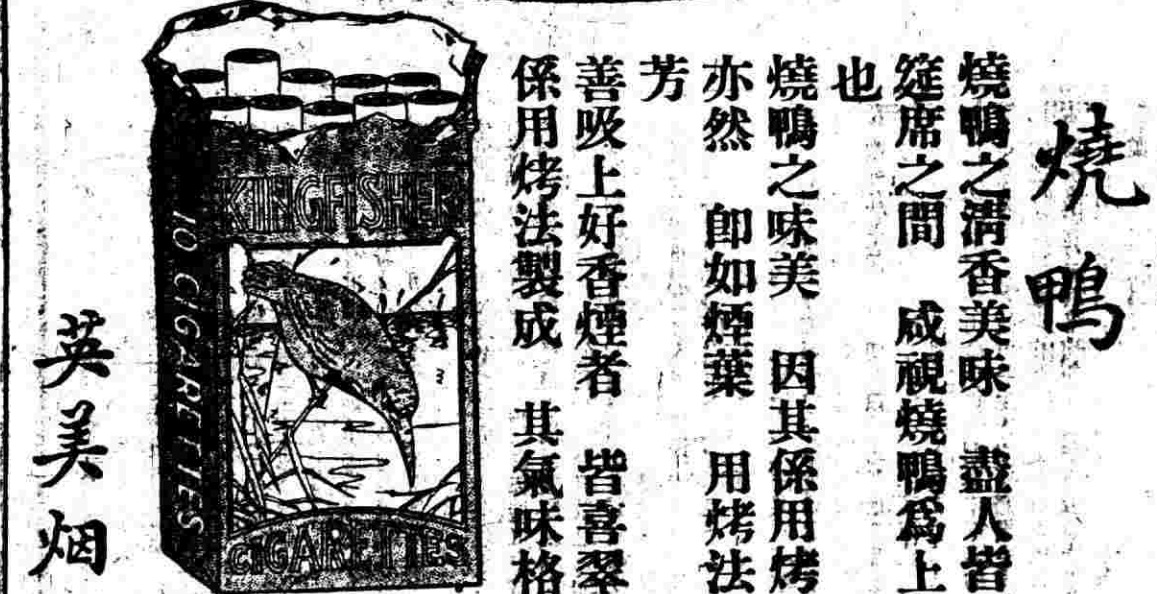 燒鴨
燒鴨之清香美味 盡人皆
筵席之間 咸視燒鴨爲上
也
燒鴨之味美 因其係用烤
亦然 卽如煙葉 用烤法
芳
善吸上好香煙者 皆喜翠
係用烤法製成 其氣味格
KINGFISHER
10 CIGARETTES
CIGARETTES
英美烟